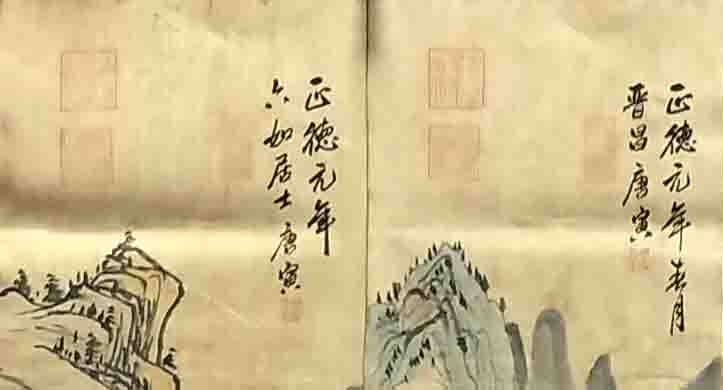 正德元年
六如居士唐寅
正德元年春月
晋昌唐寅